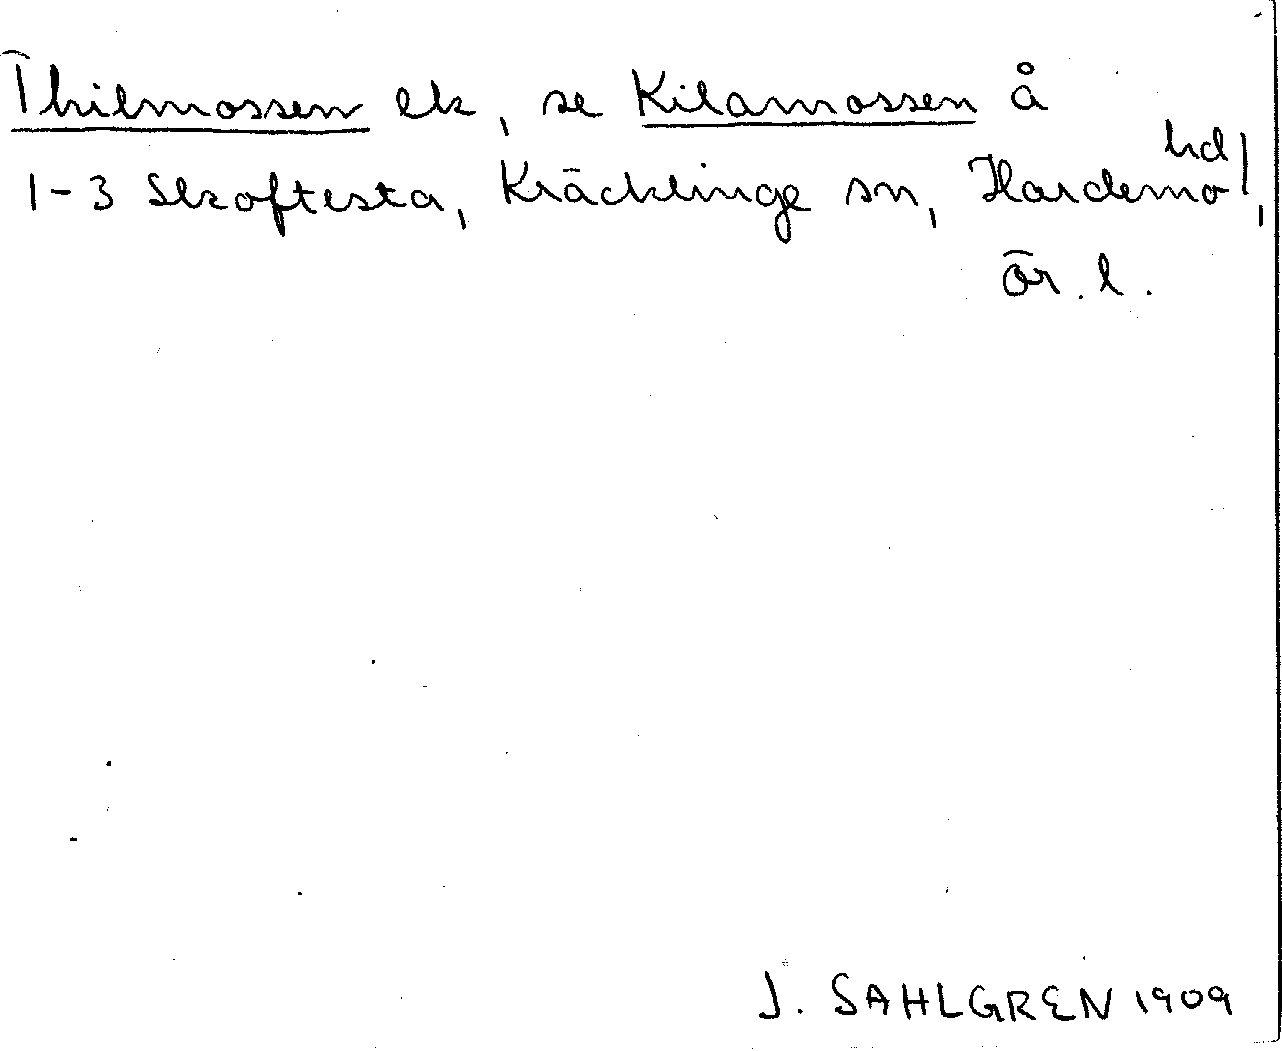 Thilmossen ek, se Kilamossen å
1-3 Skoftesta, Kräcklinge sn, Hardemo hd,
ör. l.
J. SAHLGREN 1909